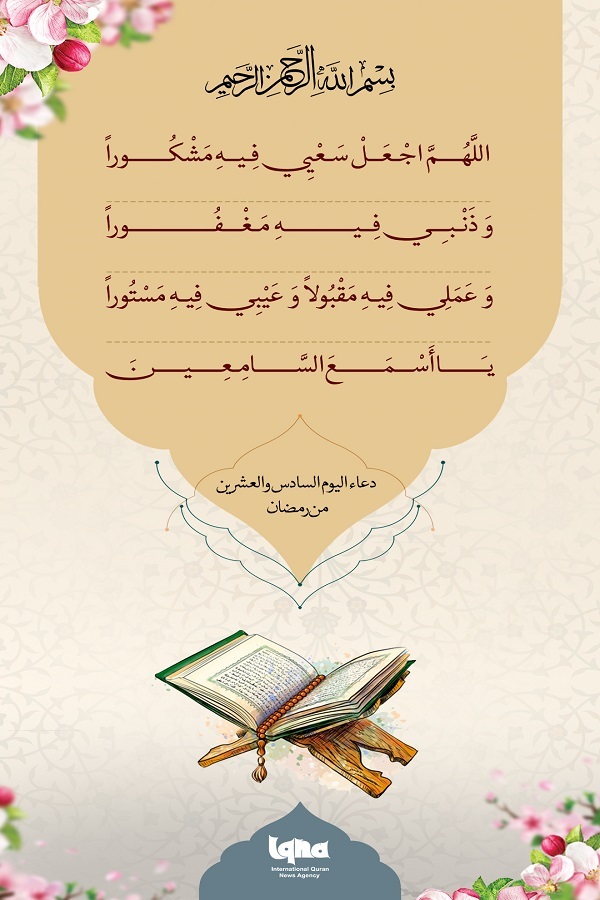 بِسْمِ اللَّهِ الرَّحْمَنِ الرَّحِيمِ
اللَّهُمَّ اجْعَلْ سَعْيِي فِيهِ مَشْكُوراً
وَ ذَنْبِي فِيهِ مَغْفُوراً
وَ عَمَلِي فِيهِ مَقْبُولاً وَ عَيْبِي فِيهِ مَسْتُوراً
يَا أَسْمَعَ السَّامِعِينَ
دعاء اليوم السادس والعشرين
من رمضان
Iqna
International Quran
News Agency